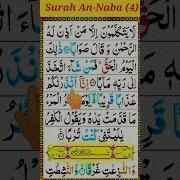 Surah An-Naba (4)
لَا يَتَكَلَّمُونَ إِلَّا مَنْ أَذِنَ لَهُ
الرَّحْمٰنُ وَقَالَ صَوَابًا ذٰلِكَ
الْيَوْمُ الْحَقُّ فَمَنْ شَاءَ اتَّخَذَ
إِلٰى رَبِّهِ مَاٰبًا إِنَّا أَنْذَرْنٰكُمْ
عَذَابًا قَرِيبًا يَوْمَ يَنْظُرُ الْمَرْءُ
مَا قَدَّمَتْ يَدٰهُ وَيَقُولُ الْكٰفِرُ
يٰلَيْتَنِي كُنْتُ تُرٰبًا
وَالنّٰزِعٰتِ غَرْقًا وَالنّٰشِطٰتِ